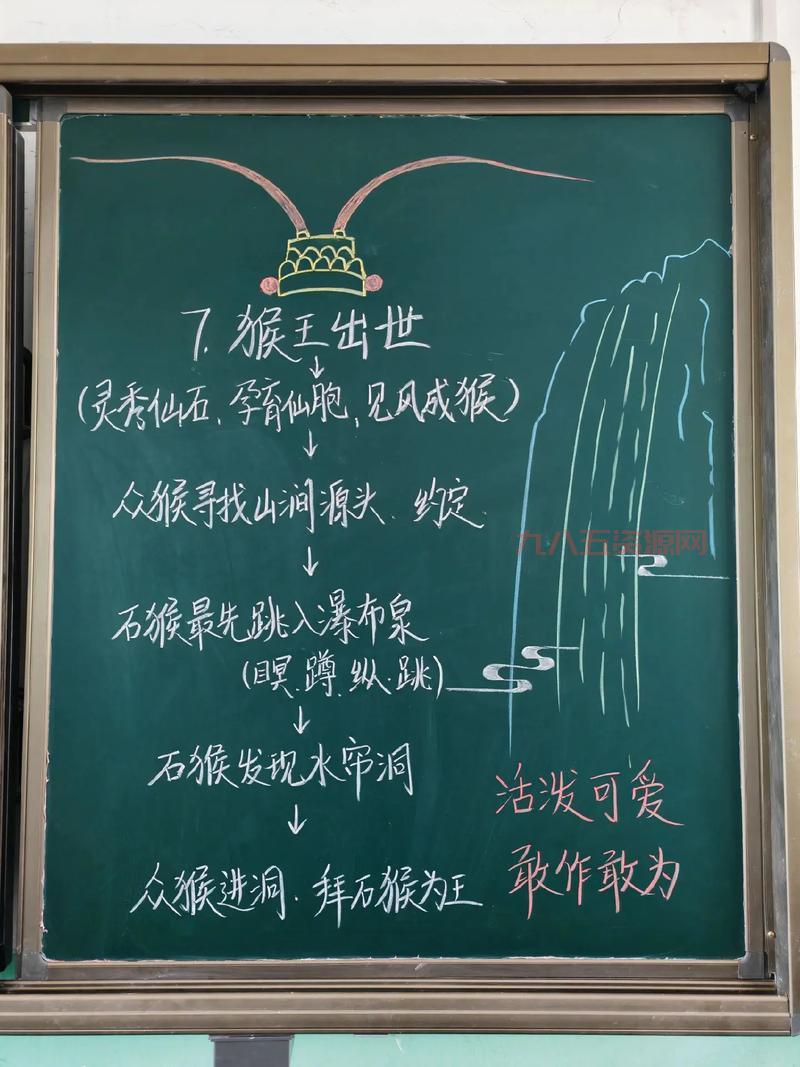 7.猴王出世
(灵秀仙石、孕育仙胞、见风成猴)
众猴寻找山涧源头、约定
九八五资源网
石猴最先跳入瀑布泉
(瞑、蹲、纵、跳)
石猴发现水帘洞
活泼可爱
敢作敢为
众猴进洞、拜石猴为王